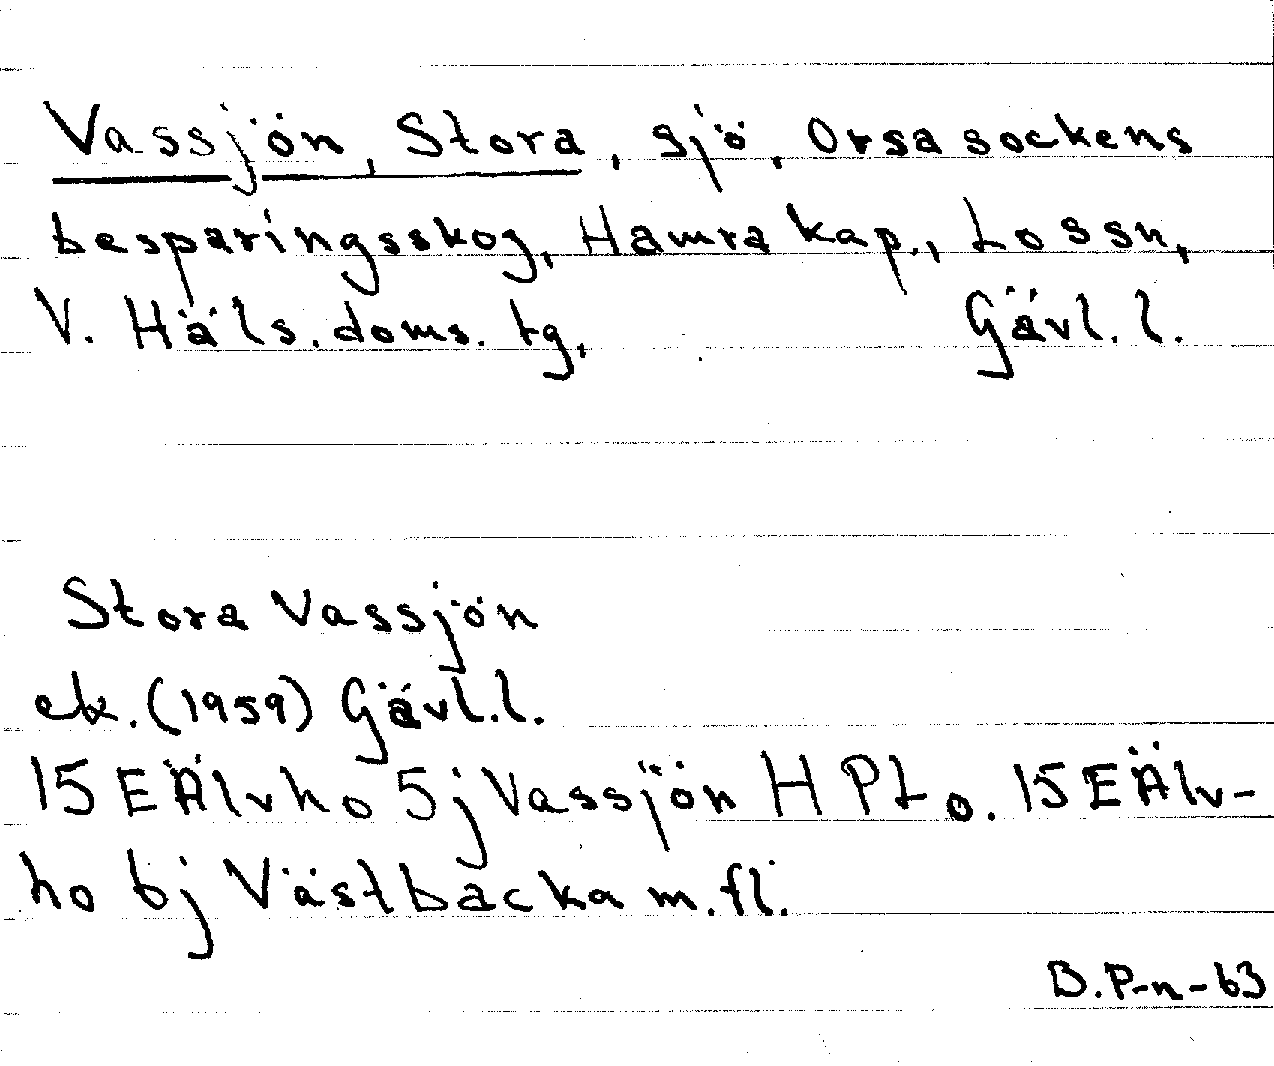 Vassjön, Stora, sjö, Orsa sockens
besparingsskog, Hamra kap., Lossn,
V. Häls. doms. tg, Gävl. l.
Stora Vassjön
ek. (1959) Gävl. l.
15 E Älvho 5j Vassjön H PL o. 15 E Älv-
ho 6j Västbacka m.fl.
B. P-n-63